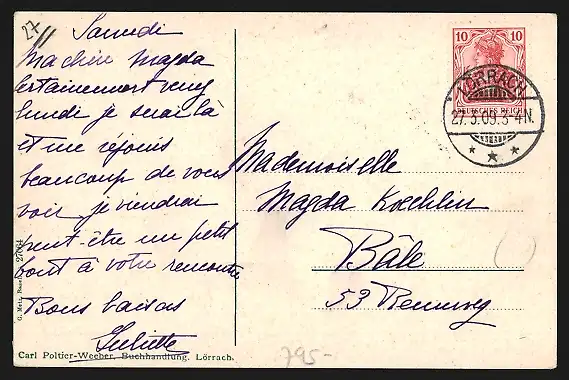 27
Samedi
Ma chère Magda
Certainement venez
lundi je serai là
et me réjouis
beaucoup de vous
voir je viendrai
peut-être un petit
bout à votre rencontre
Bons baisers
Juliette
G. Metz, Basel 27004
Carl Poltier-Weeber, Buchhandlung, Lörrach.
10 10
DEUTSCHES REICH
LÖRRACH
27.3.09.3-4N.
Mademoiselle
Magda Koechlin
Bâle
53 Rennweg
795-